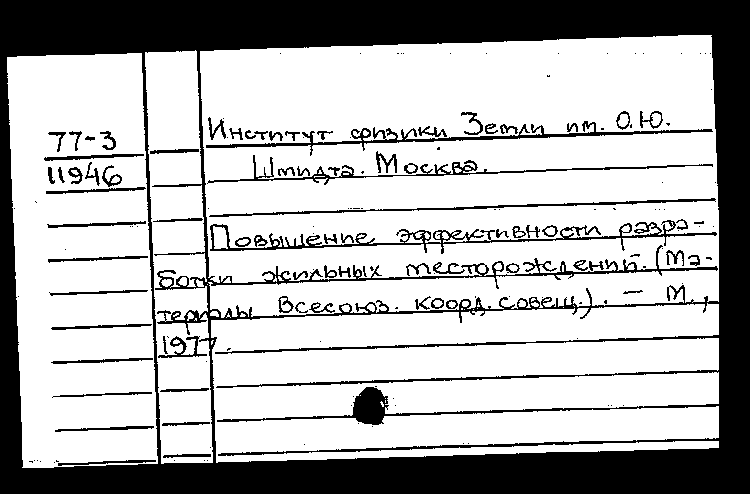 77-3
11946
Институт физики Земли им. О.Ю.
Шмидта. Москва.
Повышение эффективности разра-
ботки жильных месторождений. (Ма-
териалы Всесоюз. коорд. совещ.). — М.,
1977.